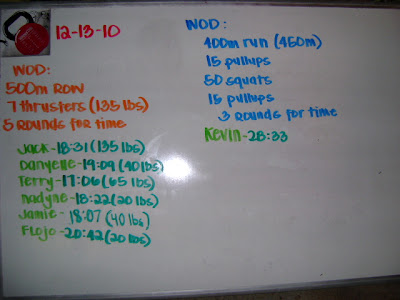 12-13-10
WOD:
500m Row
7 thrusters (135 lbs)
5 Rounds for time
Jack - 18:31 (135 lbs)
Danyelle - 19:09 (40 lbs)
Terry - 17:06 (65 lbs)
Nadyne - 18:22 (20 lbs)
Jamie - 18:07 (40 lbs)
FloJo - 20:42 (20 lbs)
WOD:
400m run (450m)
15 pullups
50 squats
15 pullups
3 rounds for time
Kevin - 28:33